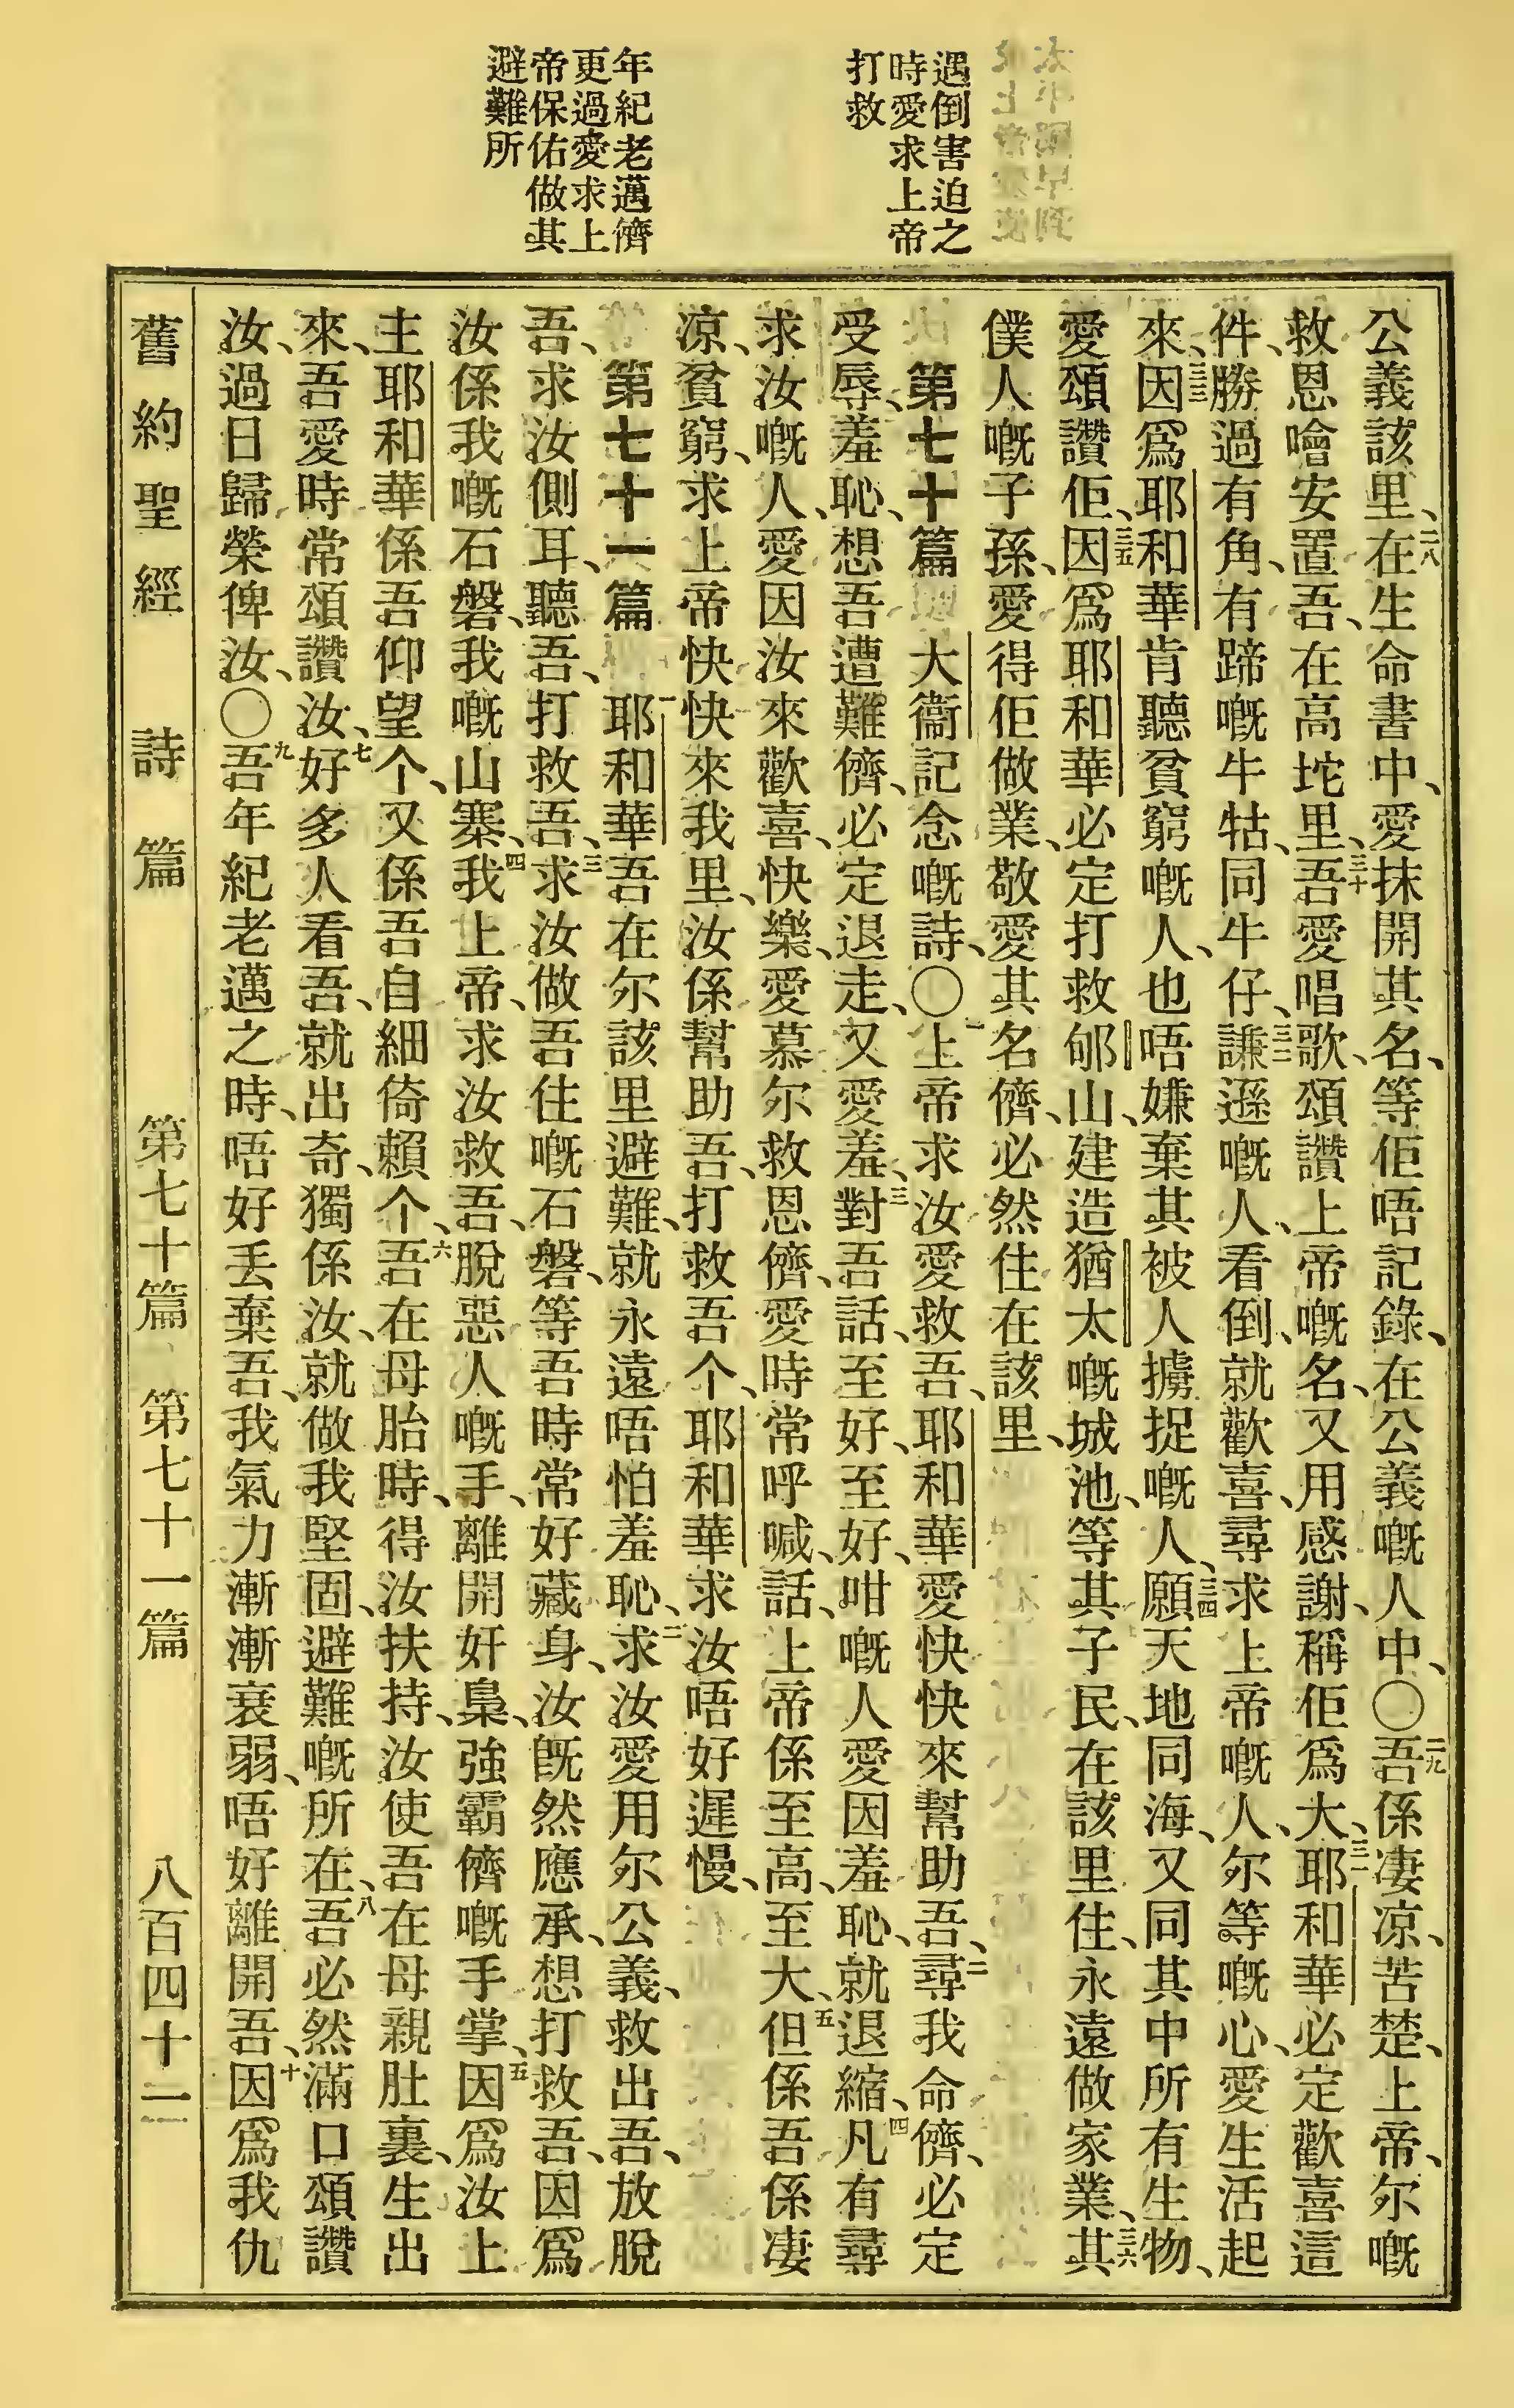 遇倒害迫之
時愛求上帝
打救
年紀老邁儕
更過愛求上
帝保佑做其
避難所
公義該里、二八在生命書中、愛抹開其名、等佢唔記錄、在公義嘅人中、〇二九吾係凄凉、苦楚、上帝、尔嘅
救恩噲安置吾、在高坨里、三十吾愛唱歌、頌讚上帝嘅名、又用感謝、稱佢爲大、三一耶和華必定歡喜這
件、勝過有角、有蹄嘅牛牯、同牛仔、三二謙遜嘅人、看倒、就歡喜、尋求上帝嘅人、尔等嘅心、愛生活起
來、三三因爲耶和華肯聽貧窮嘅人、也唔嫌棄其被人擄捉嘅人、三四願天地同海、又同其中所有生物、
愛頌讚佢、三五因爲耶和華必定打救郇山、建造猶太嘅城池、等其子民、在該里住、永遠做家業、三六其
僕人嘅子孫、愛得佢做業、敬愛其名儕、必然住在該里、
第七十篇 大衞記念嘅詩、〇一上帝求汝愛救吾、耶和華愛快快來幫助吾、二尋我命儕、必定
受辱、羞恥、想吾遭難儕、必定退走、又愛羞、三對吾話、至好、至好、咁嘅人愛因羞恥、就退縮、四凡有尋
求汝嘅人、愛因汝來歡喜、快樂、愛慕尔救恩儕、愛時常呼喊、話、上帝係至高、至大、五但係吾係凄
凉、貧窮、求上帝快快來我里、汝係幫助吾、打救吾个、耶和華求汝唔好遲慢、
第七十一篇 一耶和華吾在尔該里避難、就永遠唔怕羞恥、二求汝愛用尔公義、救出吾、放脫
吾、求汝側耳、聽吾、打救吾、三求汝做吾住嘅石磐、等吾時常好藏身、汝旣然應承、想打救吾、因爲
汝係我嘅石磐、我嘅山寨、四我上帝、求汝救吾、脫惡人嘅手、離開奸梟、強霸儕嘅手掌、五因爲汝上
主耶和華係吾仰望个、又係吾自細倚賴个、六吾在母胎時、得汝扶持、汝使吾在母親肚裏、生出
來、吾愛時常頌讚汝、七好多人看吾、就出奇、獨係汝、就做我堅固、避難嘅所在、八吾必然滿口頌讚
汝、過日歸榮俾汝、〇九吾年紀老邁之時、唔好丟棄吾、我氣力漸漸衰弱、唔好離開吾、十因爲我仇
舊約聖經 詩篇 第七十篇 第七十一篇 八百四十二